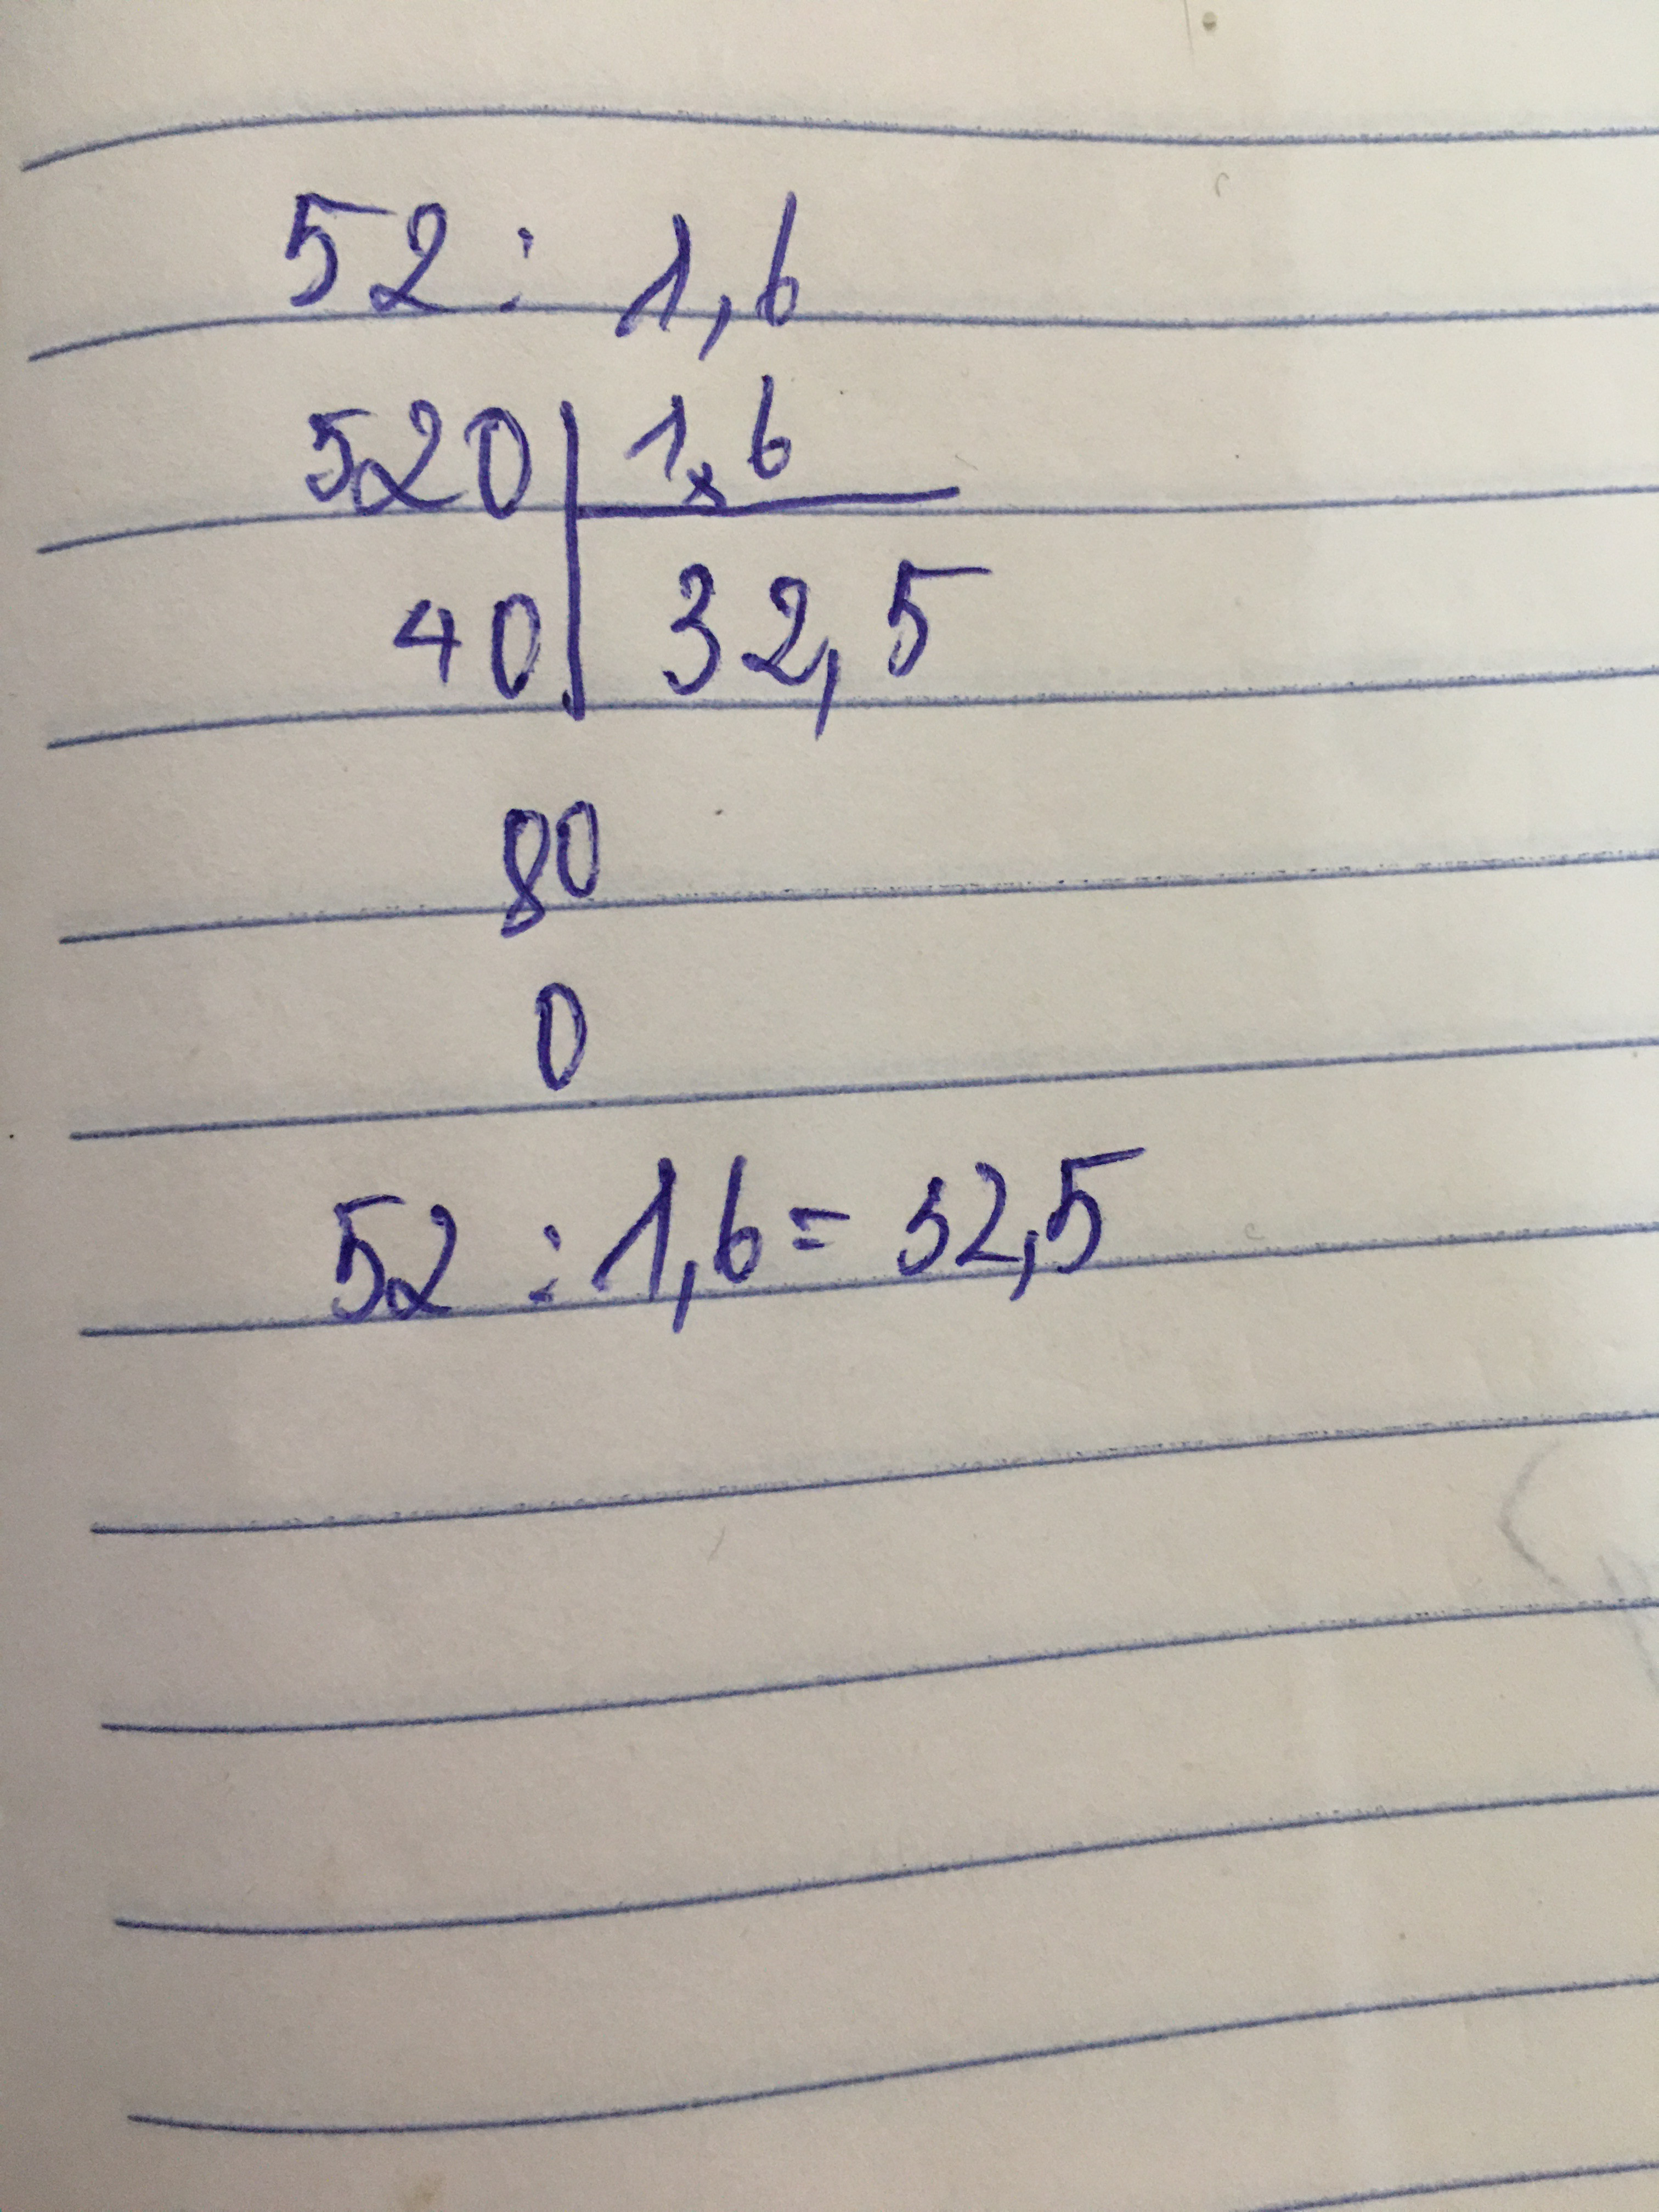 52 : 1,6
520 | 1,6
40 | 32,5
80
0
52 : 1,6 = 32,5